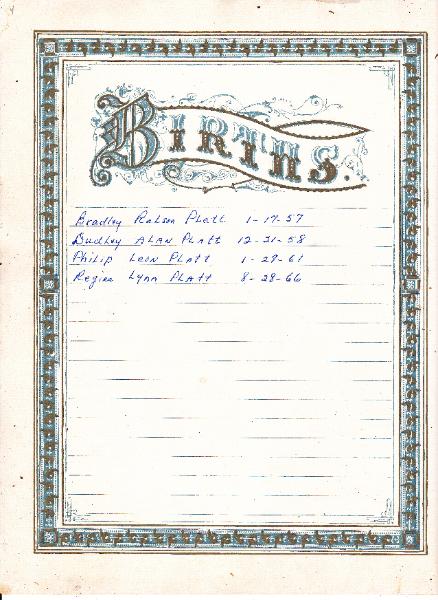 BIRTHS.
Bradley Ralson Platt 1-17-57
Dudley ALAN PLATT 12-31-58
Philip LEON PLATT 1-29-61
Regina LYNN PLATT 8-28-66